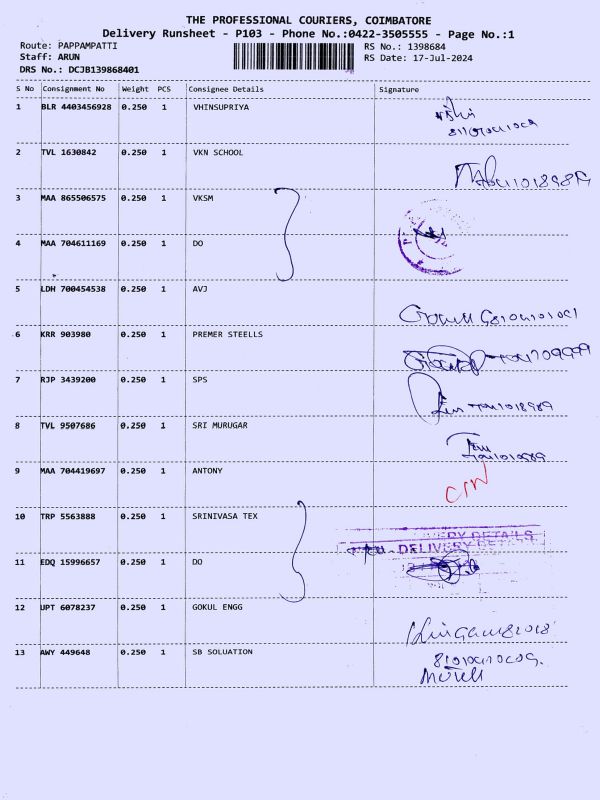 THE PROFESSIONAL COURIERS, COIMBATORE
Delivery Runsheet - P103 - Phone No.:0422-3505555 - Page No.:1
Route: PAPPAMPATTI RS No.: 1398684
Staff: ARUN RS Date: 17-Jul-2024
DRS No.: DCJB139868401
S No Consignment No Weight PCS Consignee Details Signature
1 BLR 4403456928 0.250 1 VHINSUPRIYA
2 TVL 1630842 0.250 1 VKN SCHOOL
3 MAA 865506575 0.250 1 VKSM
4 MAA 704611169 0.250 1 DO
5 LDH 700454538 0.250 1 AVJ
6 KRR 903980 0.250 1 PREMER STEELLS
7 RJP 3439200 0.250 1 SPS
8 TVL 9507686 0.250 1 SRI MURUGAR
9 MAA 704419697 0.250 1 ANTONY
10 TRP 5563888 0.250 1 SRINIVASA TEX
DELIVERY DETAILS
11 EDQ 15996657 0.250 1 DO
12 UPT 6078237 0.250 1 GOKUL ENGG
13 AWY 449648 0.250 1 SB SOLUATION